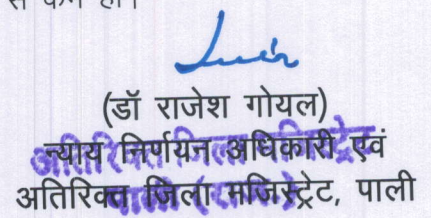 से कम हो।
(डॉ राजेश गोयल)
न्याय निर्णयन अधिकारी एवं
अतिरिक्त जिला मजिस्ट्रेट, पाली